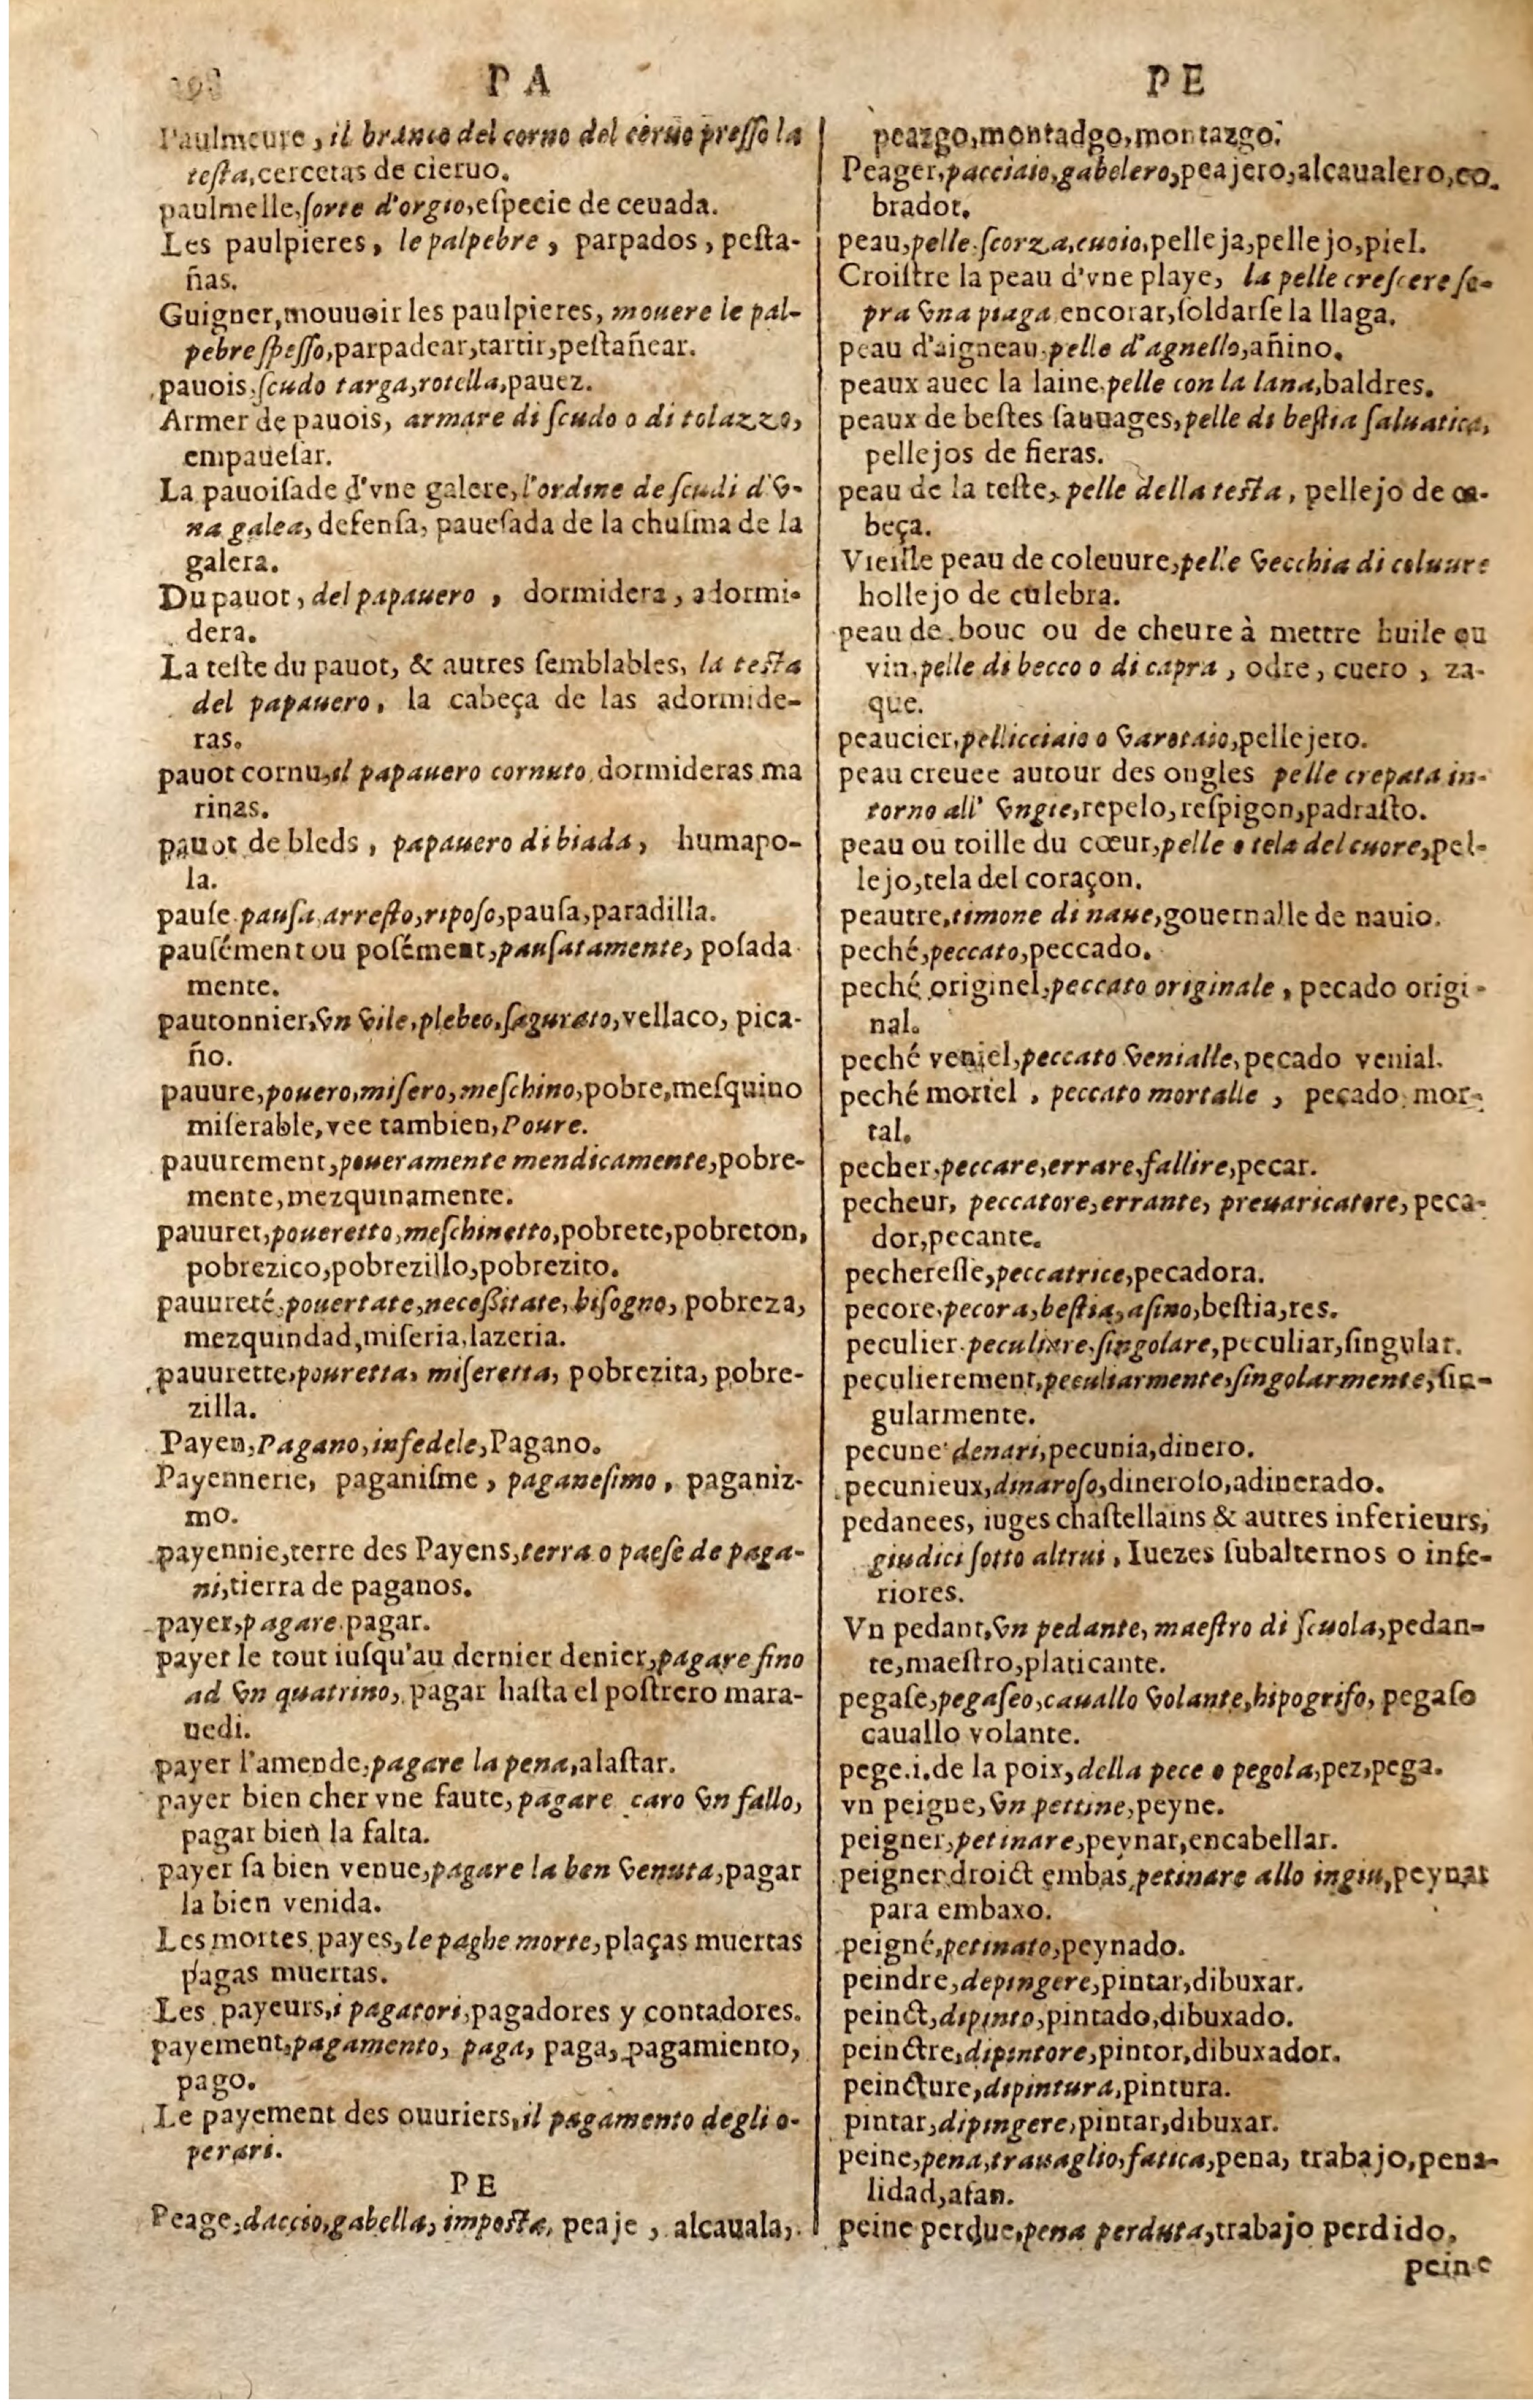 PA
Paulmeure, il branco del corno del ceruo presso la
testa, cercetas de cieruo.
paulmelle, ſorte d'orgio, eſpecie de ceuada.
Les paulpieres, le palpebre, parpados, peſta-
ñas.
Guigner, mouuoir les paulpieres, mouere le pal-
pebre ſpeſſo, parpadear, tartir, peſtañear.
pauois, ſcudo targa, rotella, pauez.
Armer de pauois, armare di ſcudo o di tolazzo,
empaueſar.
La pauoiſade d'vne galere, l'ordine de ſcudi d'v-
na galea, defenſa, paueſada de la chuſma de la
galera.
Du pauot, del papauero, dormidera, adormi-
dera.
La teſte du pauot, & autres ſemblables, la teſta
del papauero, la cabeça de las adormide-
ras.
pauot cornu, il papauero cornuto dormideras ma
rinas.
pauot de bleds, papauero di biada, humapo-
la.
pauſe pauſa, arreſto, ripoſo, pauſa, paradilla.
pauſément ou poſément, pauſatamente, poſada
mente.
pautonnier, vn vile, plebeo, ſagurato, vellaco, pica-
ño.
pauure, pouero, miſero, meſchino, pobre, meſquino
miſerable, vee tambien, Poure.
pauurement, poueramente mendicamente, pobre-
mente, mezquinamente.
pauuret, poueretto, meſchinetto, pobrete, pobreton,
pobrezico, pobrezillo, pobrezito.
pauureté, pouertate, neceßitate, biſogno, pobreza,
mezquindad, miſeria, lazeria.
pauurette, pouretta, miſeretta, pobrezita, pobre-
zilla.
Payen, Pagano, infedele, Pagano.
Payennerie, paganiſme, paganeſimo, paganiz-
mo.
payennie, terre des Payens, terra o paeſe de paga-
ni, tierra de paganos.
payer, pagare pagar.
payer le tout iuſqu'au dernier denier, pagare ſino
ad vn quatrino, pagar haſta el poſtrero mara-
uedi.
payer l'amende, pagare la pena, alaſtar.
payer bien cher vne faute, pagare caro vn fallo,
pagar bien la falta.
payer ſa bien venue, pagare la ben venuta, pagar
la bien venida.
Les mortes payes, le paghe morte, plaças muertas
pagas muertas.
Les payeurs, i pagatori, pagadores y contadores.
payement, pagamento, paga, paga, pagamiento,
pago.
Le payement des ouuriers, il pagamento degli o-
perari.
PE
Peage, daccio, gabella, impoſta, peaje, alcauala,
PE
peazgo, montadgo, montazgo.
Peager, pacciaio, gabelero, peajero, alcaualero, co-
brador.
peau, pelle ſcorza, cuoio, pelleja, pellejo, piel.
Croiſtre la peau d'vne playe, la pelle creſcere ſo-
pra vna piaga encorar, ſoldarſe la llaga.
peau d'aigneau, pelle d'agnello, añino.
peaux auec la laine, pelle con la lana, baldres.
peaux de beſtes ſauuages, pelle di beſtia ſaluatica,
pellejos de fieras.
peau de la teſte, pelle della teſta, pellejo de ca-
beça.
Vieille peau de coleuure, pelle vecchia di coluure
hollejo de culebra.
peau de bouc ou de cheure à mettre huile ou
vin, pelle di becco o di capra, odre, cuero, za-
que.
peaucier, pellicciaio o varotaio, pellejero.
peau creuee autour des ongles pelle crepata in-
torno all' vngie, repelo, reſpigon, padraſto.
peau ou toille du cœur, pelle o tela del cuore, pel-
lejo, tela del coraçon.
peautre, timone di naue, gouernalle de nauio.
peché, peccato, peccado.
peché originel, peccato originale, pecado origi-
nal.
peché veniel, peccato venialle, pecado venial.
peché mortel, peccato mortalle, pecado mor-
tal.
pecher, peccare, errare, fallire, pecar.
pecheur, peccatore, errante, preuaricatore, peca-
dor, pecante.
pechereſſe, peccatrice, pecadora.
pecore, pecora, beſtia, aſino, beſtia, res.
peculier peculiare, ſingolare, peculiar, ſingular.
peculierement, peculiarmente, ſingolarmente, ſin-
gularmente.
pecune denari, pecunia, dinero.
pecunieux, dinaroſo, dineroſo, adinerado.
pedanees, iuges chaſtellains & autres inferieurs,
giudici ſotto altrui, Iuezes ſubalternos o infe-
riores.
Vn pedant, vn pedante, maeſtro di ſcuola, pedan-
te, maeſtro, platicante.
pegaſe, pegaſeo, cauallo volante, hipogrifo, pegaſo
cauallo volante.
pege.i.de la poix, della pece o pegola, pez, pega.
vn peigne, vn pettine, peyne.
peigner, petinare, peynar, encabellar.
peigner droict embas, petinare allo ingiu, peynar
para embaxo.
peigné, petinato, peynado.
peindre, depingere, pintar, dibuxar.
peinct, dipinto, pintado, dibuxado.
peinctre, dipintore, pintor, dibuxador.
peincture, dipintura, pintura.
pintar, dipingere, pintar, dibuxar.
peine, pena, trauaglio, fatica, pena, trabajo, pena-
lidad, afan.
peine perdue, pena perduta, trabajo perdido.
peine